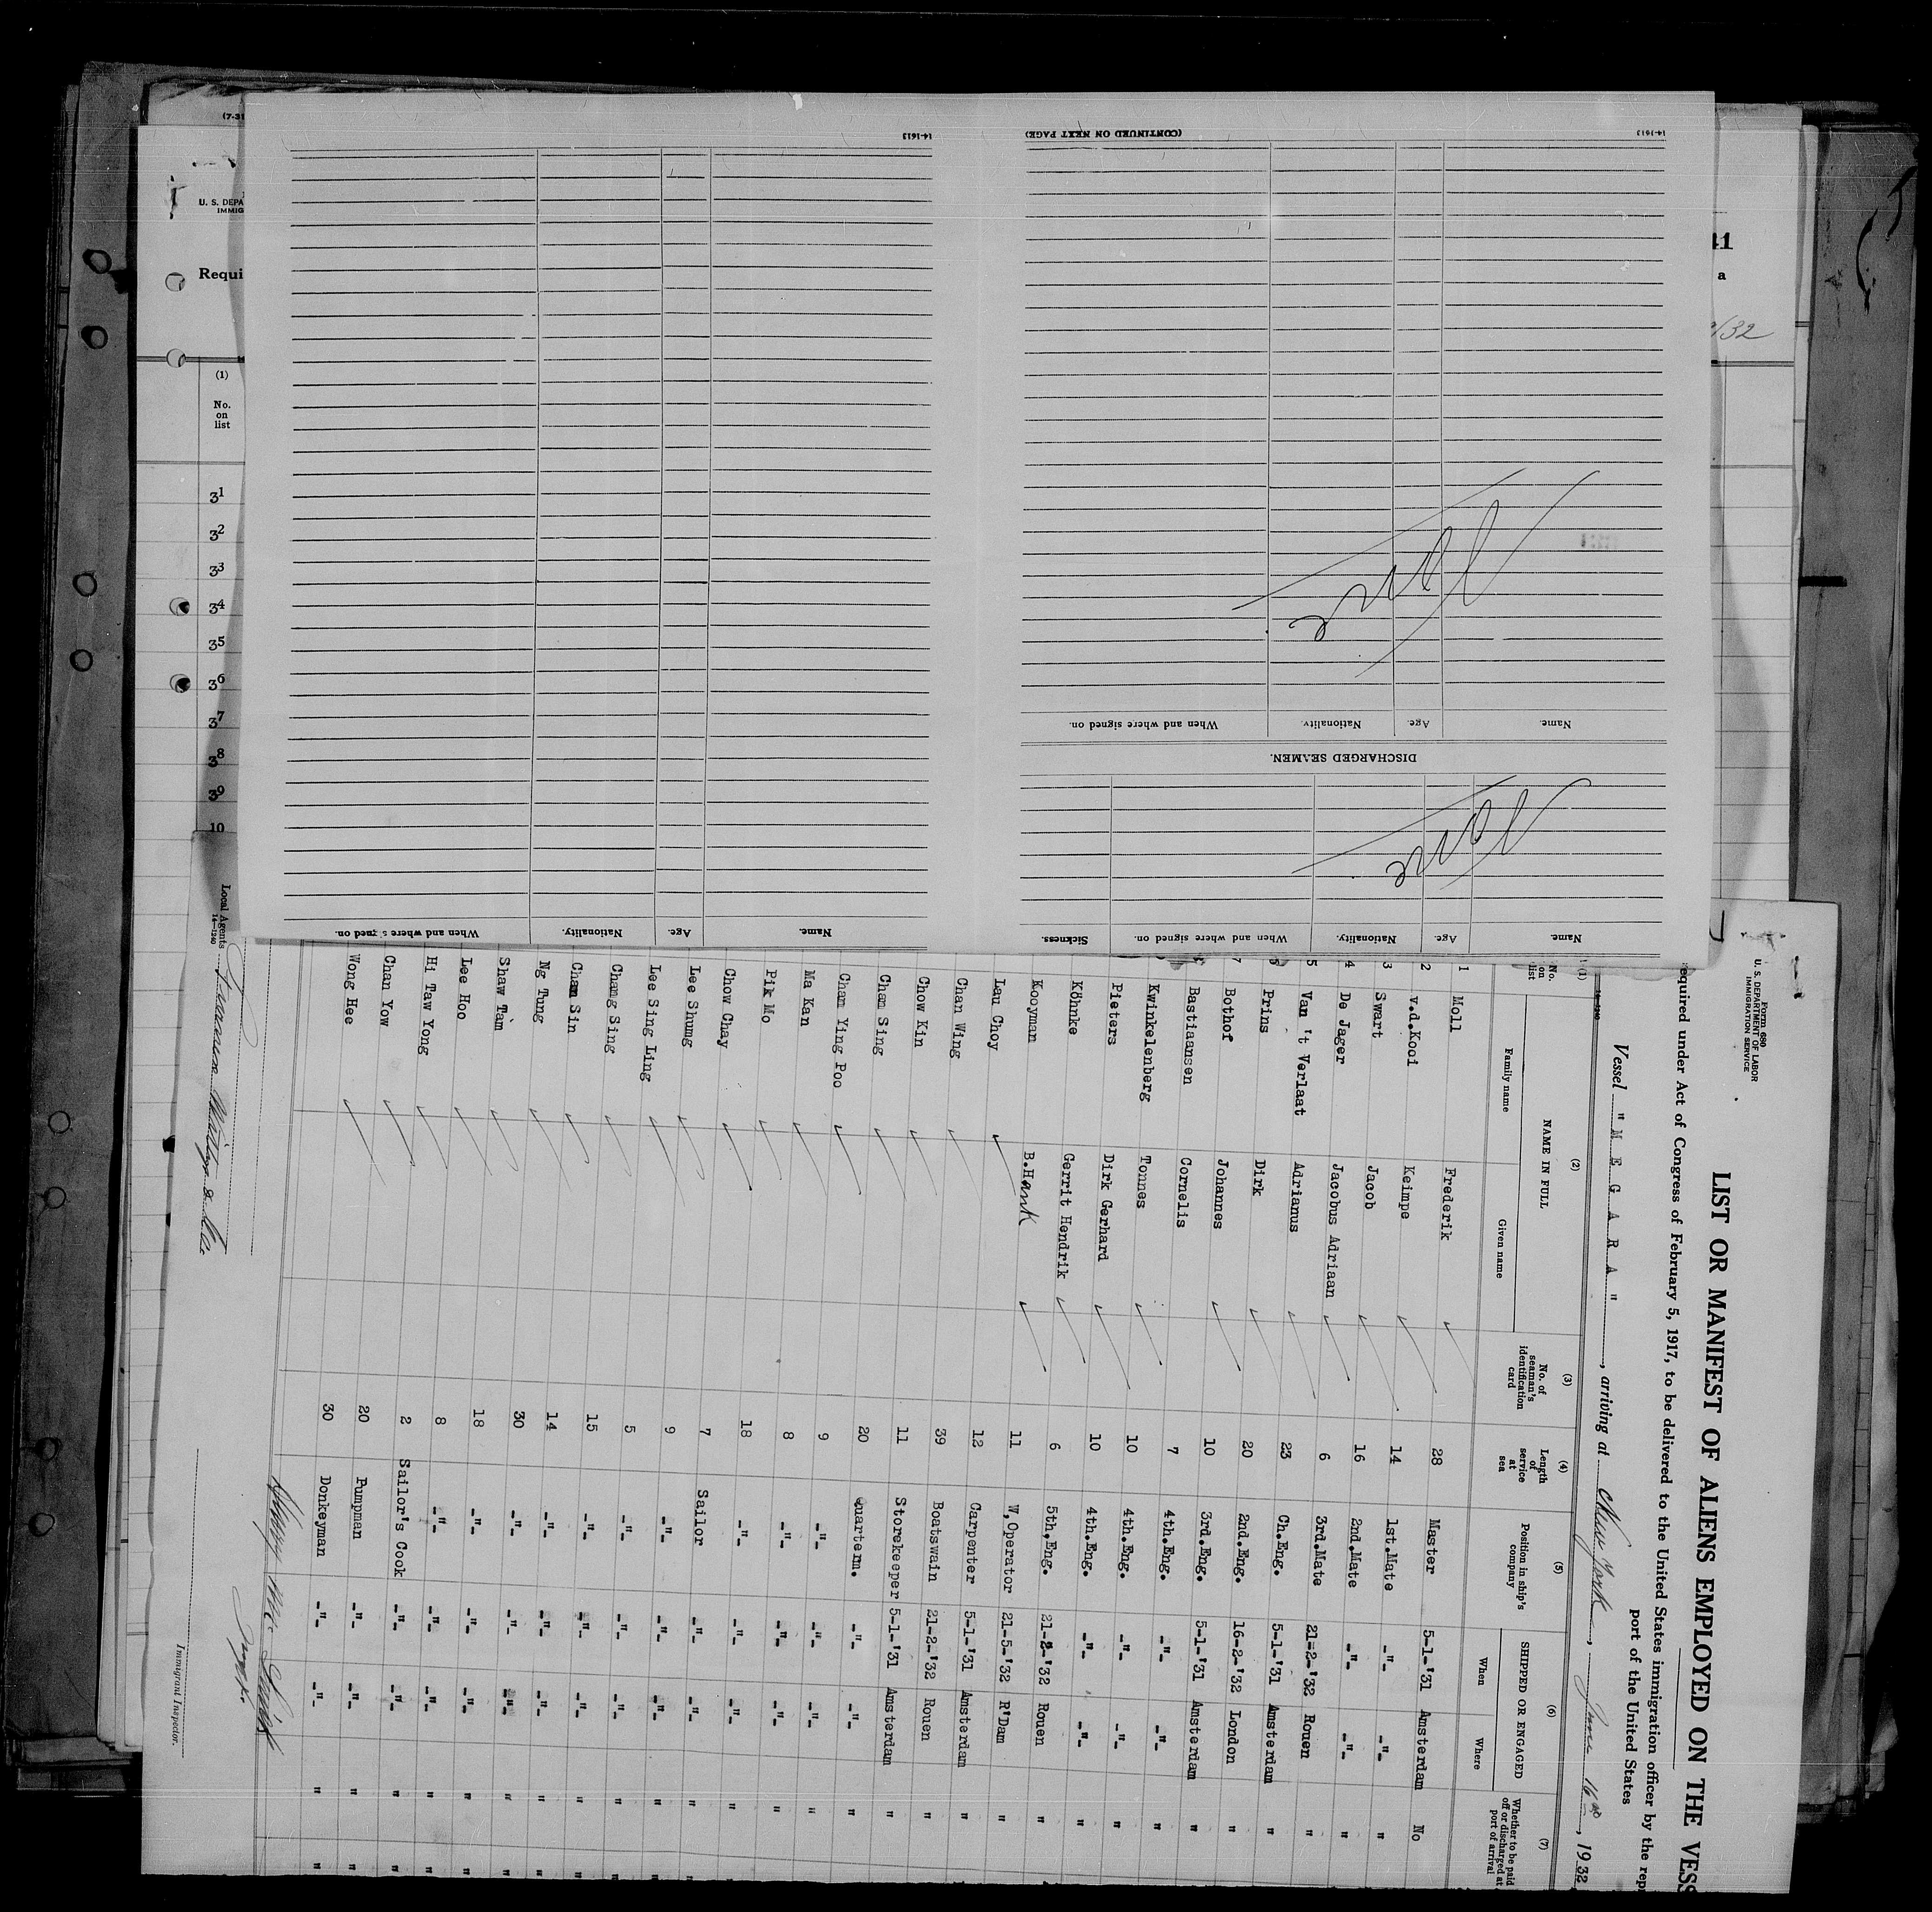 (7-31
U. S. DEPA
IMMIG
Requi
(1)
No.
on
list
31
32
33
34
35
36
37
38
39
10
41
a
/32
14-1613
(CONTINUED ON NEXT PAGE)
14-1613
Name. Age. Nationality. When and where signed on.
None
DISCHARGED SEAMEN.
Name. Age. Nationality. When and where signed on. Sickness.
None
Name. Age. Nationality. When and where signed on.
Form 680
U. S. DEPARTMENT OF LABOR
IMMIGRATION SERVICE
LIST OR MANIFEST OF ALIENS EMPLOYED ON THE VESS
equired under Act of Congress of February 5, 1917, to be delivered to the United States immigration officer by the rep
port of the United States
Vessel "M E G A R A", arriving at New York, June 16th, 1932
14-1240
(1) (2) (3) (4) (5) (6) (7)
No. on list
NAME IN FULL
Family name
Given name
No. of seaman's identification card
Length of service at sea
Position in ship's company
SHIPPED OR ENGAGED
When
Where
Whether to be paid off or discharged at port of arrival
1 Moll Frederik 28 Master 5-1-'31 Amsterdam No
2 v.d.Kooi Keimpe 14 1st.Mate -"- -"- "
3 Swart Jacob 16 2nd.Mate -"- -"- "
4 De Jager Jacobus Adriaan 6 3rd.Mate 21-2-'32 Rouen "
5 Van 't Verlaat Adrianus 23 Ch.Eng. 5-1-'31 Amsterdam "
6 Prins Dirk 20 2nd.Eng. 16-2-'32 London "
7 Bothof Johannes 10 3rd.Eng. 5-1-'31 Amsterdam "
Bastiaansen Cornelis 7 4th.Eng. -"- -"- "
Kwinkelenberg Tonnes 10 4th.Eng. -"- -"- "
Pieters Dirk Gerhard 10 4th.Eng. -"- -"- "
Köhnke Gerrit Hendrik 6 5th.Eng. 21-2-'32 Rouen "
Kooyman B.Hank 11 W.Operator 21-5-'32 R'Dam "
Lau Choy 12 Carpenter 5-1-'31 Amsterdam "
Chan Wing 39 Boatswain 21-2-'32 Rouen "
Chow Kin 11 Storekeeper 5-1-'31 Amsterdam "
Cham Sing 20 Quarterm. -"- -"- "
Cham Ying Poo 9 -"- -"- -"- "
Ma Kan 8 -"- -"- -"- "
Pik Mo 18 -"- -"- -"- "
Chow Chay 7 Sailor -"- -"- "
Lee Shung 9 -"- -"- -"- "
Lee Sing Ling 5 -"- -"- -"- "
Chang Sing 15 -"- -"- -"- "
Cham Sin 14 -"- -"- -"- "
Ng Tung 30 -"- -"- -"- "
Shaw Tam 18 -"- -"- -"- "
Lee Hoo 8 -"- -"- -"- "
Hi Taw Yong 2 Sailor's Cook -"- -"- "
Chan Yow 20 Pumpman -"- -"- "
Wong Hee 30 Donkeyman -"- -"- "
Immigrant Inspector.
Local Agents
14-1240